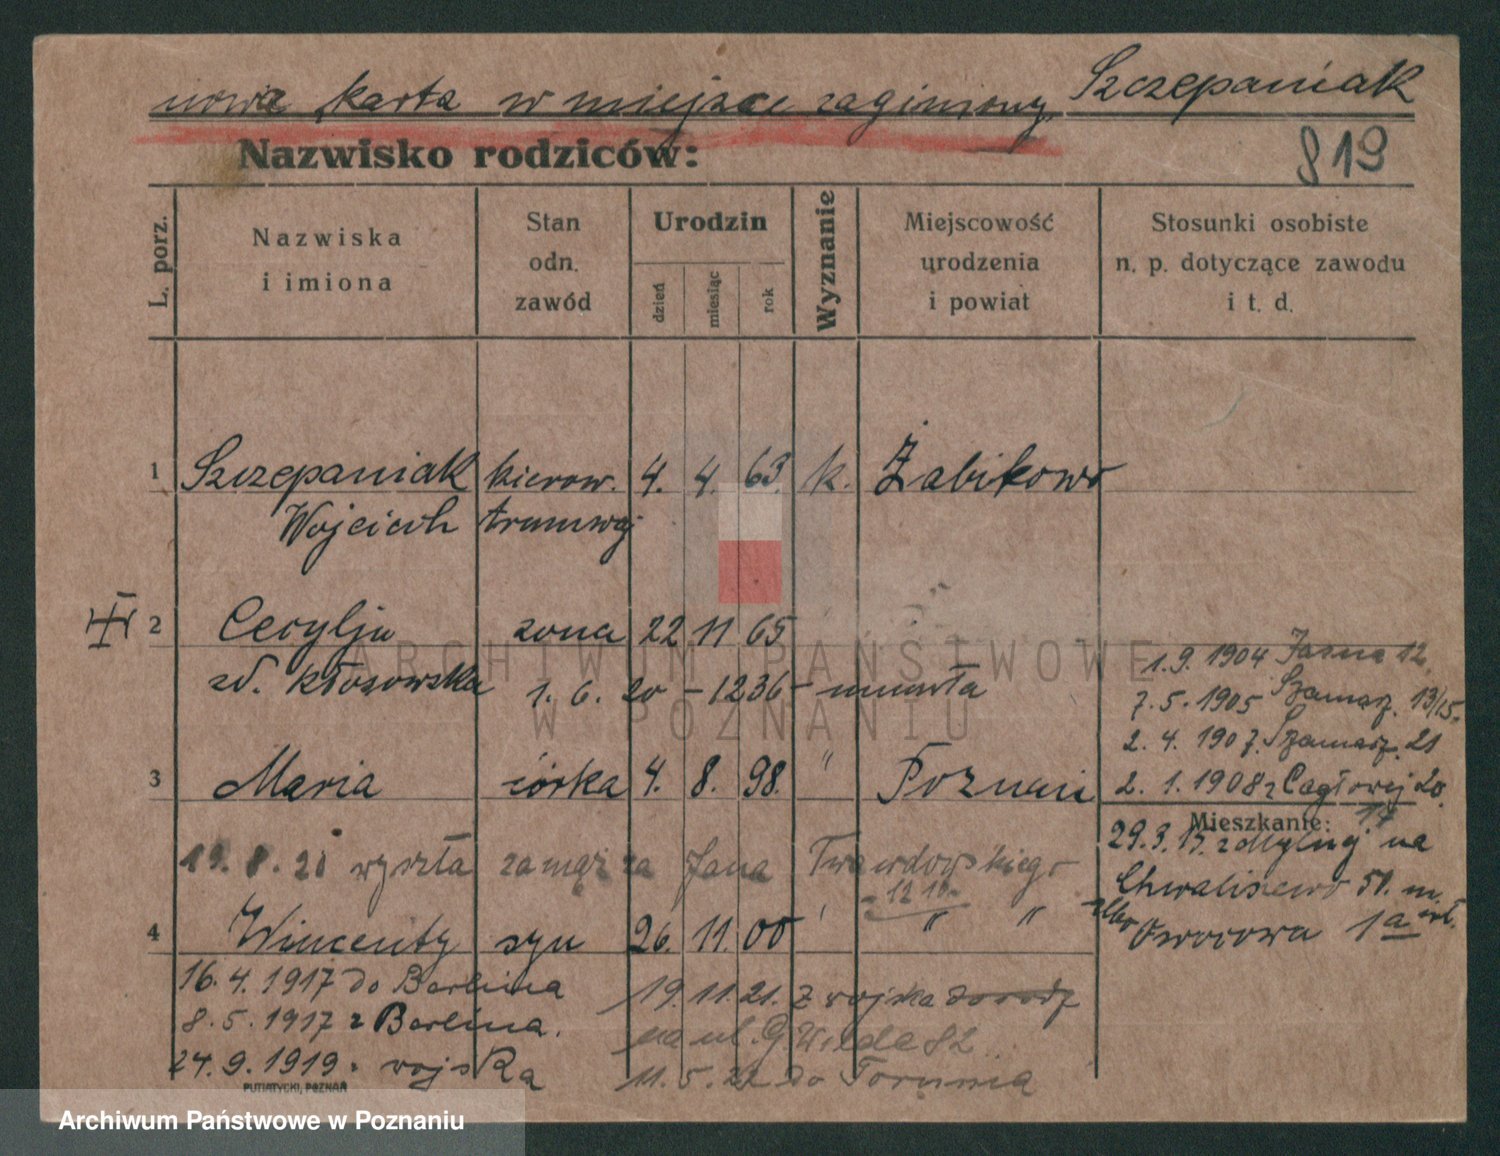 nowa karta w miejsce zaginionej. Szczepaniak
819
Nazwisko rodziców:
L. porz.
Nazwiska
i imiona
Stan
odn.
zawód
Urodzin
dzień
miesiąc
rok
Wyznanie
Miejscowość
urodzenia
i powiat
Stosunki osobiste
n. p. dotyczące zawodu
i t. d.
1 Szczepaniak kierow. 4. 4. 63. k. Żabikowo
Wojciech tramwaj
2 Cecylja żona 22 11 65
zd. Kłosowska 1. 6. 20 - 1236 - umarła
1. 9. 1904 Jasna 12.
7. 5. 1905 Szamarz. 13/15.
2. 4. 1907. Szamarz. 21
3 Maria córka 4. 8. 98. " Poznań
2. 1. 1908 r 20.
Mieszkanie: 14
29.3. na
19. 8. 20 wyszła zamąż za Jana Twardowskiego
Chwaliszewo 51. m.
4 Wincenty syn 26. 11. 00 " " "
1a
16. 4. 1917 do Berlina
19. 11. 21. z wojska
8. 5. 1917 z Berlina.
na ul. G. Wilda 82
24. 9. 1919. wojska
11. 5. 22 do Torunia
PUTIATYCKI, POZNAŃ
ARCHIWUM PAŃSTWOWE
W POZNANIU
Archiwum Państwowe w Poznaniu